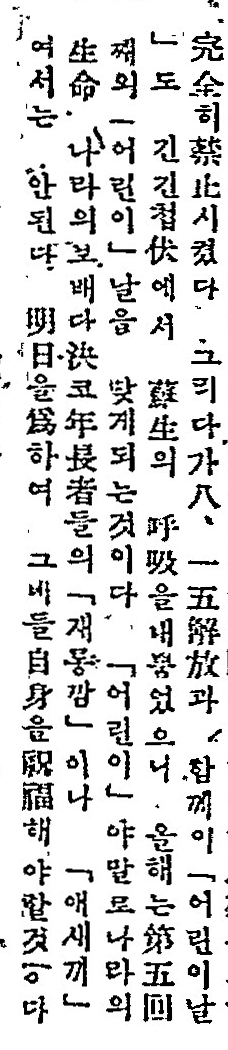 完全히 禁止시켰다 그러다가 八、一五解放과 함께 이「어린이날
」도 긴긴첩伏에서 蘇生의 呼吸을내뿜었으니 올해는第五回
째의「어린이」날을 맞게되는것이다 「어린이」야말로나라의
生命 나라의보배다 決코年長者들의「재롱깜」이나 「애새끼」
여서는 안된다 明日을爲하여 그네들自身을祝福해야할것이다